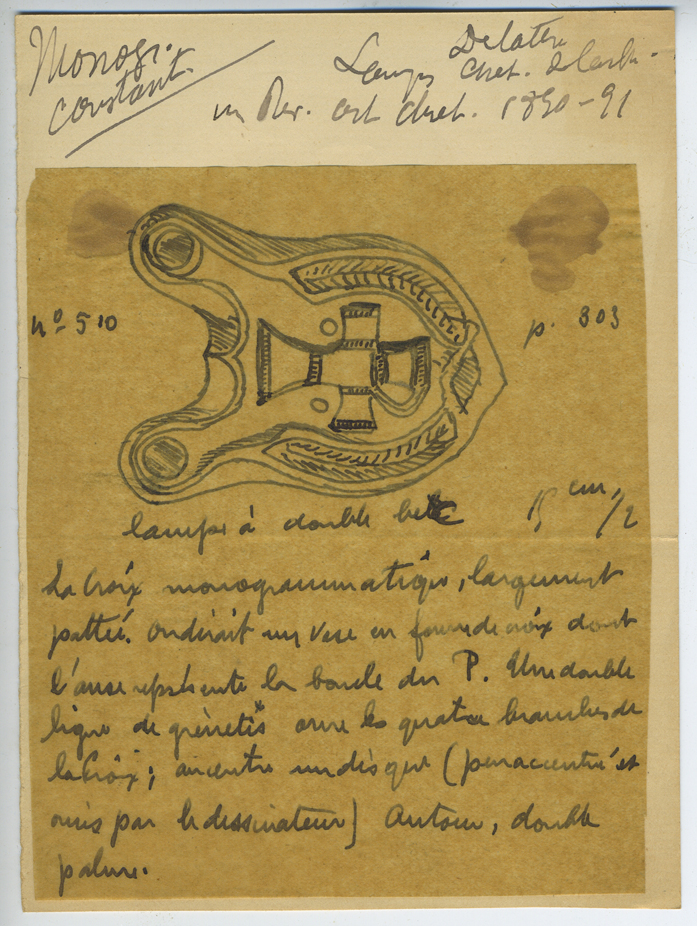 Monogr.
constant.
Delatre
Lampes chret.
in Rev. art chret. 1890-91
nº 510
p. 303
lampe à double bec 15 cm, 1/2
La Croix monogrammatique, largement
pattée. On dirait un vase en forme de croix dont
l'anse représente la boucle du P. Une double
ligne de grènetis orne les quatre branches de
la Croix; au centre un disque (peu accentué et
omis par le dessinateur) Autour, double
palme.